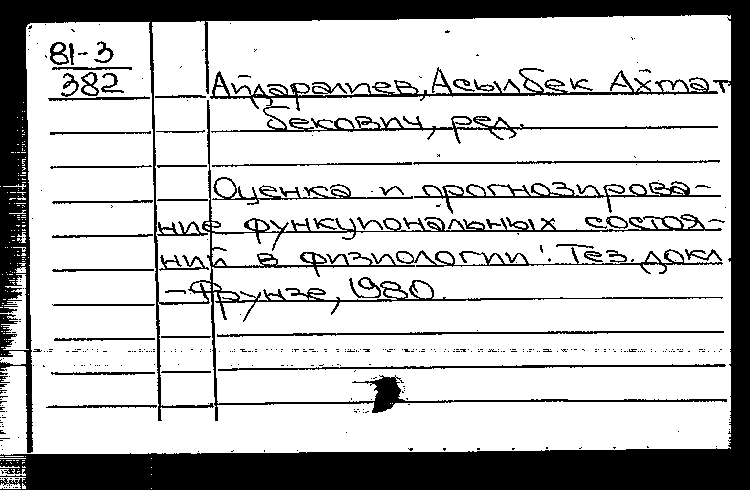 81-3
382
Айдаралиев, Асылбек Ахмат
бекович, ред.
Оценка и прогнозирова-
ние функциональных состоя-
ний в физиологии: Тез. докл.
-Фрунзе, 1980.